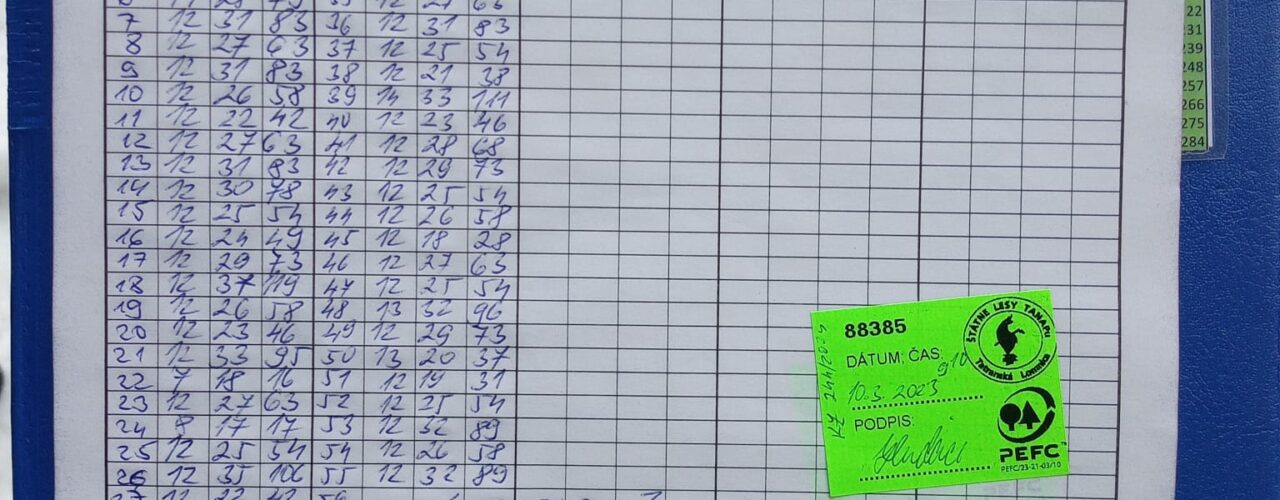 7 12 31 83 36 12 31 83
8 12 27 63 37 12 25 54
9 12 31 83 38 12 21 38
10 12 26 58 39 14 33 111
11 12 22 42 40 12 23 46
12 12 27 63 41 12 28 68
13 12 31 83 42 12 29 73
14 12 30 78 43 12 25 54
15 12 25 54 44 12 26 58
16 12 24 49 45 12 18 28
17 12 29 73 46 12 27 63
18 12 37 119 47 12 25 54
19 12 26 58 48 13 32 96
20 12 23 46 49 12 29 73
21 12 33 95 50 13 20 37
22 7 18 16 51 12 19 31
23 12 27 63 52 12 25 54
24 8 17 17 53 12 32 89
25 12 25 54 54 12 26 58
26 12 35 106 55 12 32 89
22
231
239
248
257
266
275
284
88385
DÁTUM: ČAS: 9 10
10.3.2023
PODPIS:
ŠTÁTNE LESY TANAPu
Tatranská Lomnica
PEFC
PEFC/23-21-03/10